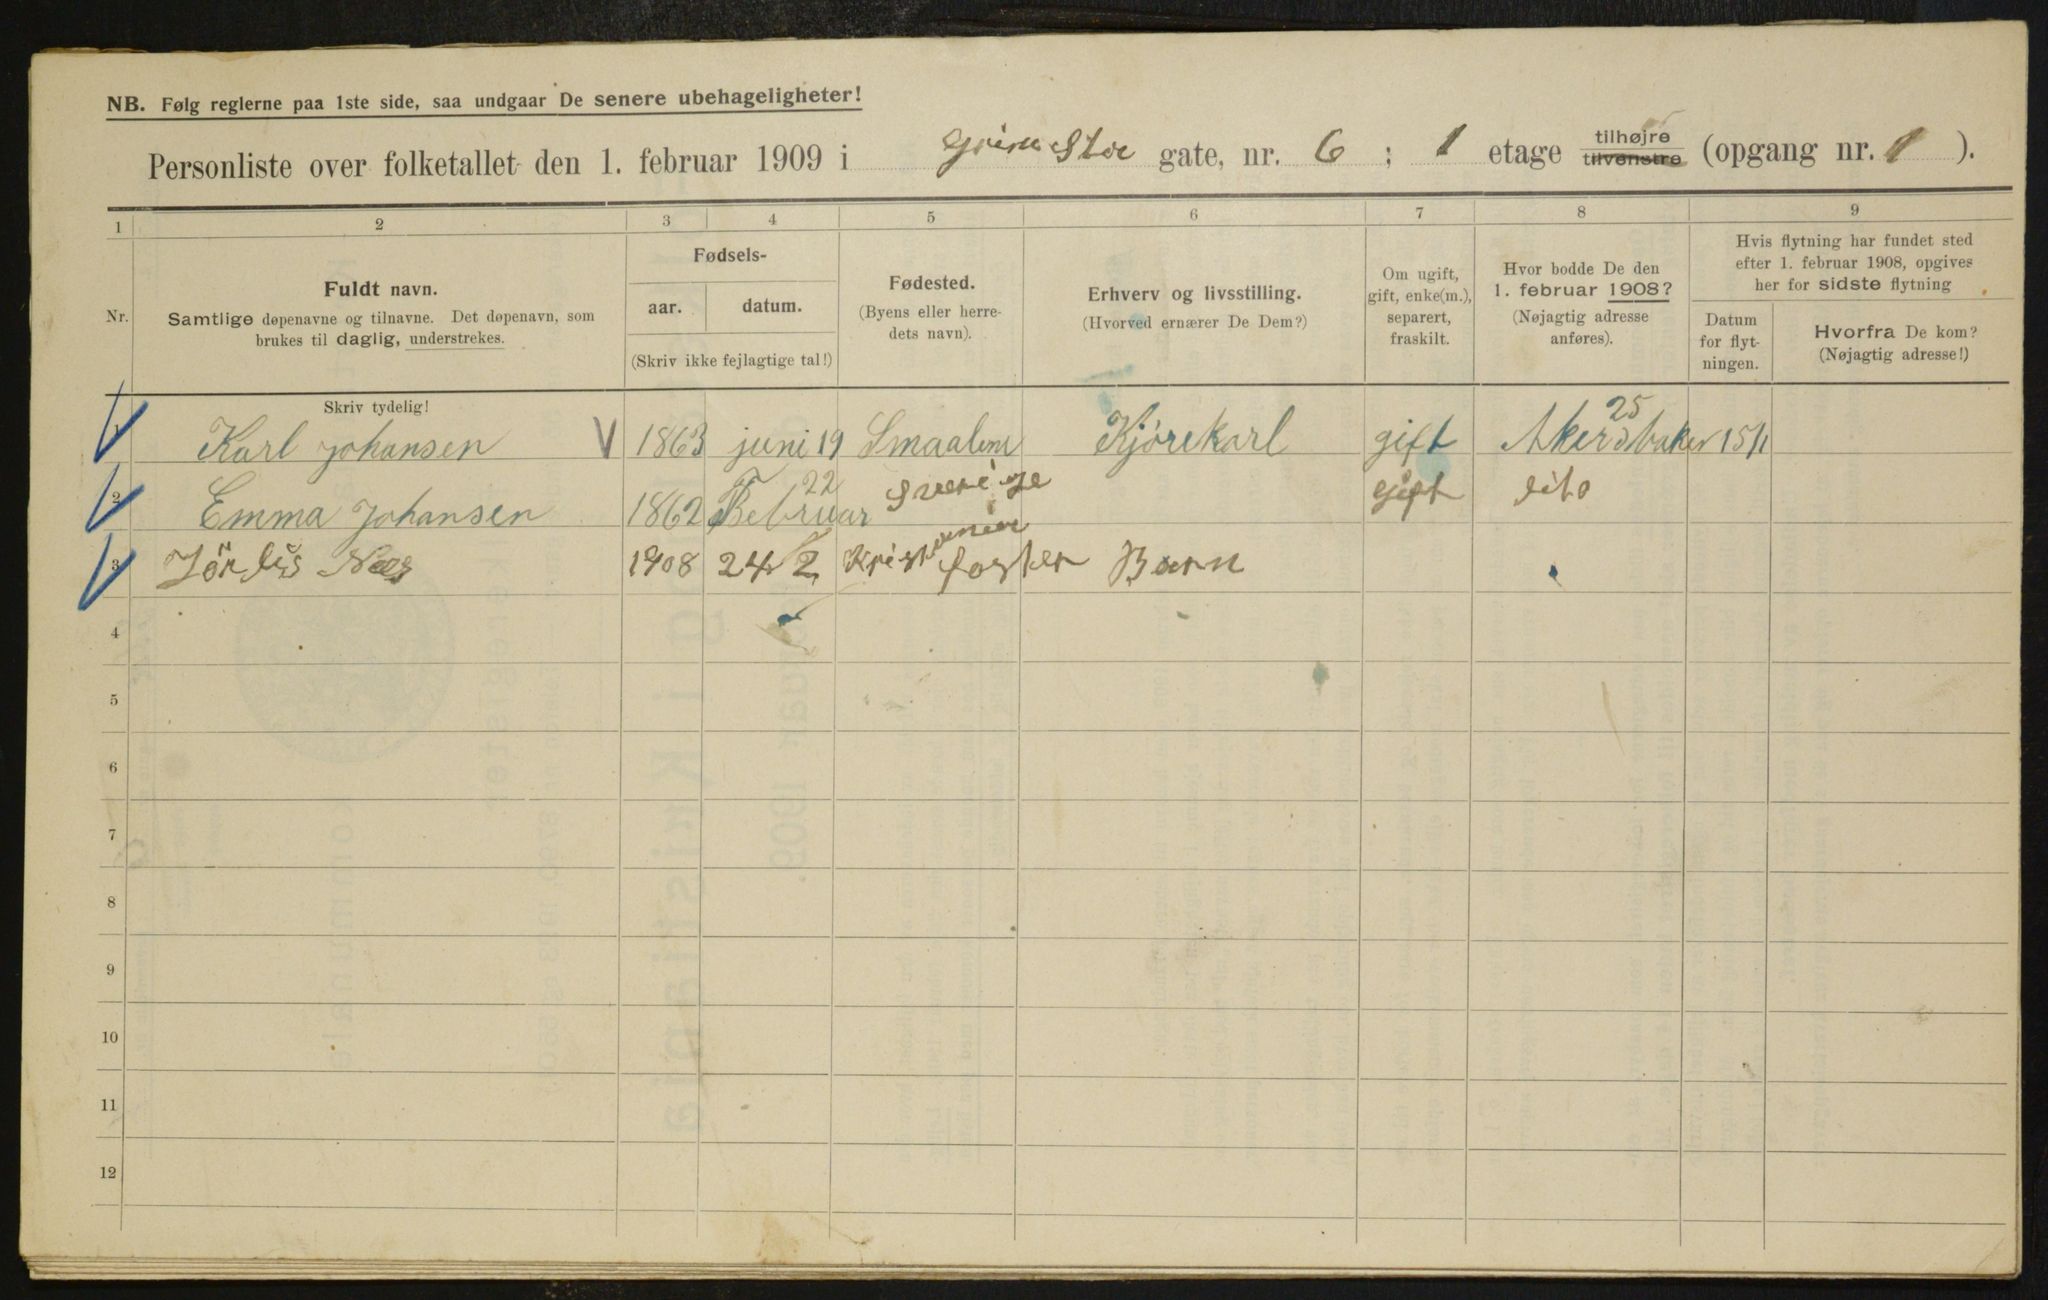 NB. Følg reglerne paa 1ste side, saa undgaar De senere ubehageligheter!
Personliste over folketallet den 1. februar 1909 i gate, nr. 6 ; 1 etage tilhøjre tilvenstre (opgang nr. 1 ).
1 2 3 4 5 6 7 8 9
Nr.
Fuldt navn.
Samtlige døpenavne og tilnavne. Det døpenavn, som
brukes til daglig, understrekes.
Fødsels-
aar. datum.
(Skriv ikke fejlagtige tal!)
Fødested.
(Byens eller herre-
dets navn).
Erhverv og livsstilling.
(Hvorved ernærer De Dem?)
Om ugift,
gift, enke(m.),
separert,
fraskilt.
Hvor bodde De den
1. februar 1908?
(Nøjagtig adresse
anføres).
Hvis flytning har fundet sted
efter 1. februar 1908, opgives
her for sidste flytning
Datum
for flyt-
ningen.
Hvorfra De kom?
(Nøjagtig adresse!)
Skriv tydelig!
1 Karl Johansen 1863 juni 19 Smaalene Kjørekarl gift Akersbaken 25 15/1
2 Emma Johansen 1862 Februar 22 Sverige gift dito
3 Næs 1908 24 2 Kristiania foster Barn
4
5
6
7
8
9
10
11
12